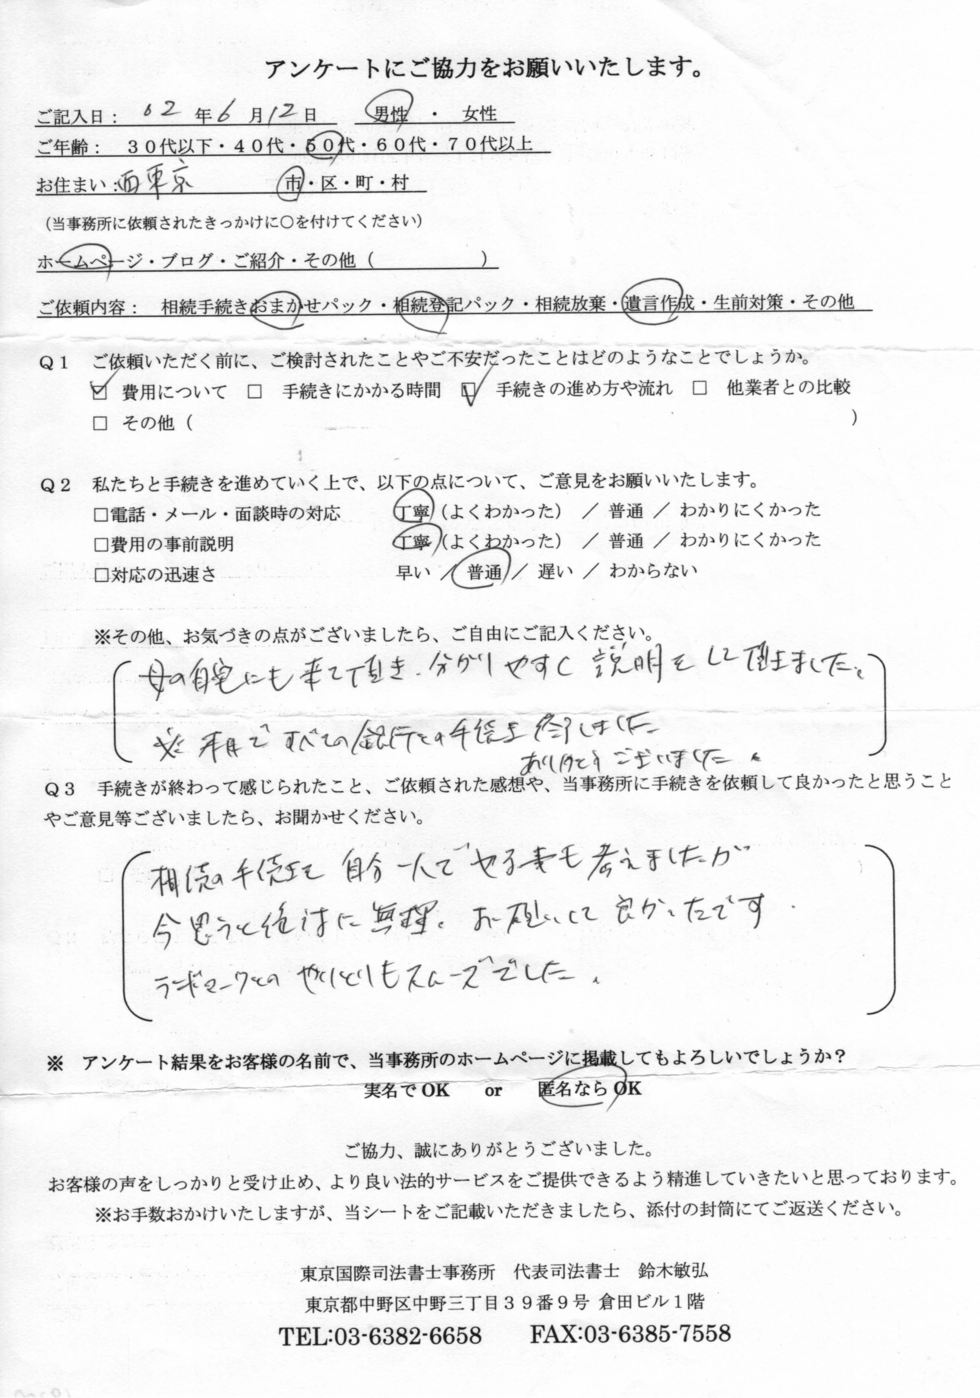 アンケートにご協力をお願いいたします。
ご記入日： 02 年 6 月 12 日　男性 ・ 女性
ご年齢： ３０代以下・４０代・５０代・６０代・７０代以上
お住まい：西東京　市・区・町・村
（当事務所に依頼されたきっかけに○を付けてください）
ホームページ・ブログ・ご紹介・その他（　　　　　）
ご依頼内容： 相続手続きおまかせパック・相続登記パック・相続放棄・遺言作成・生前対策・その他
Ｑ１ ご依頼いただく前に、ご検討されたことやご不安だったことはどのようなことでしょうか。
☑ 費用について □ 手続きにかかる時間 ☑ 手続きの進め方や流れ □ 他業者との比較
□ その他（　　　　　）
Ｑ２ 私たちと手続きを進めていく上で、以下の点について、ご意見をお願いいたします。
□電話・メール・面談時の対応　丁寧（よくわかった） ／ 普通 ／ わかりにくかった
□費用の事前説明　丁寧（よくわかった） ／ 普通 ／ わかりにくかった
□対応の迅速さ　早い ／ 普通 ／ 遅い ／ わからない
※その他、お気づきの点がございましたら、ご自由にご記入ください。
母の自宅にも来て頂き、分かりやすく説明をして頂きました。
すべての銀行との手続を終了しました
ありがとうございました。
Ｑ３ 手続きが終わって感じられたこと、ご依頼された感想や、当事務所に手続きを依頼して良かったと思うこと
やご意見等ございましたら、お聞かせください。
相続の手続きを自分一人でやる事も考えましたが
今思うと絶対に無理。お願いして良かったです.
ランドマークとのやりとりもスムーズでした。
※ アンケート結果をお客様の名前で、当事務所のホームページに掲載してもよろしいでしょうか？
実名でOK　or　匿名ならOK
ご協力、誠にありがとうございました。
お客様の声をしっかりと受け止め、より良い法的サービスをご提供できるよう精進していきたいと思っております。
※お手数おかけいたしますが、当シートをご記載いただきましたら、添付の封筒にてご返送ください。
東京国際司法書士事務所　代表司法書士　鈴木敏弘
東京都中野区中野三丁目３９番９号 倉田ビル１階
TEL:03-6382-6658　FAX:03-6385-7558